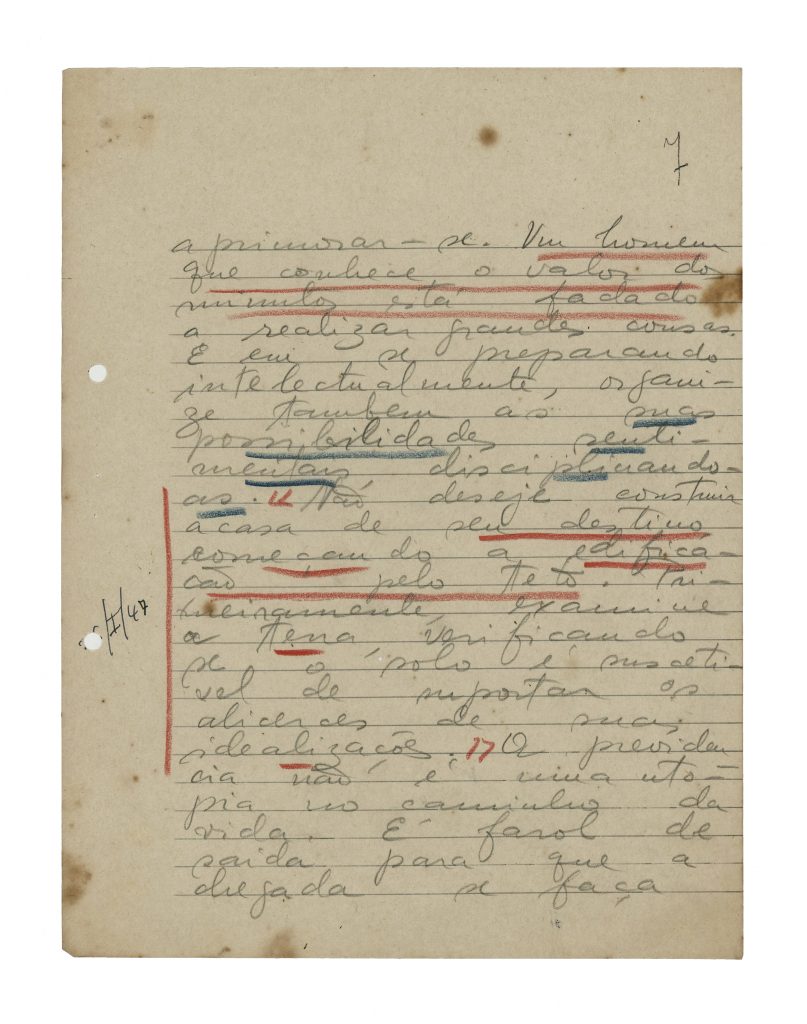 7
aprimorar-se. Um homem
que conhece o valor dos
minutos está fadado
a realizar grandes cousas.
E em se preparando
intelectualmente, organi-
ze tambem as suas
possibilidades senti-
mentais disciplinando-
as. Não deseje construir
a casa de seu destino
começando a edifica-
cão pelo teto. Pri-
meiramente, examine
a terra verificando
se o solo é susceti-
vel de suportar os
alicerces de suas
idealizações. 17 A previden
cia não é uma uto-
pia no caminho da
vida. É farol de
saida para que a
chegada se faça
/I/47